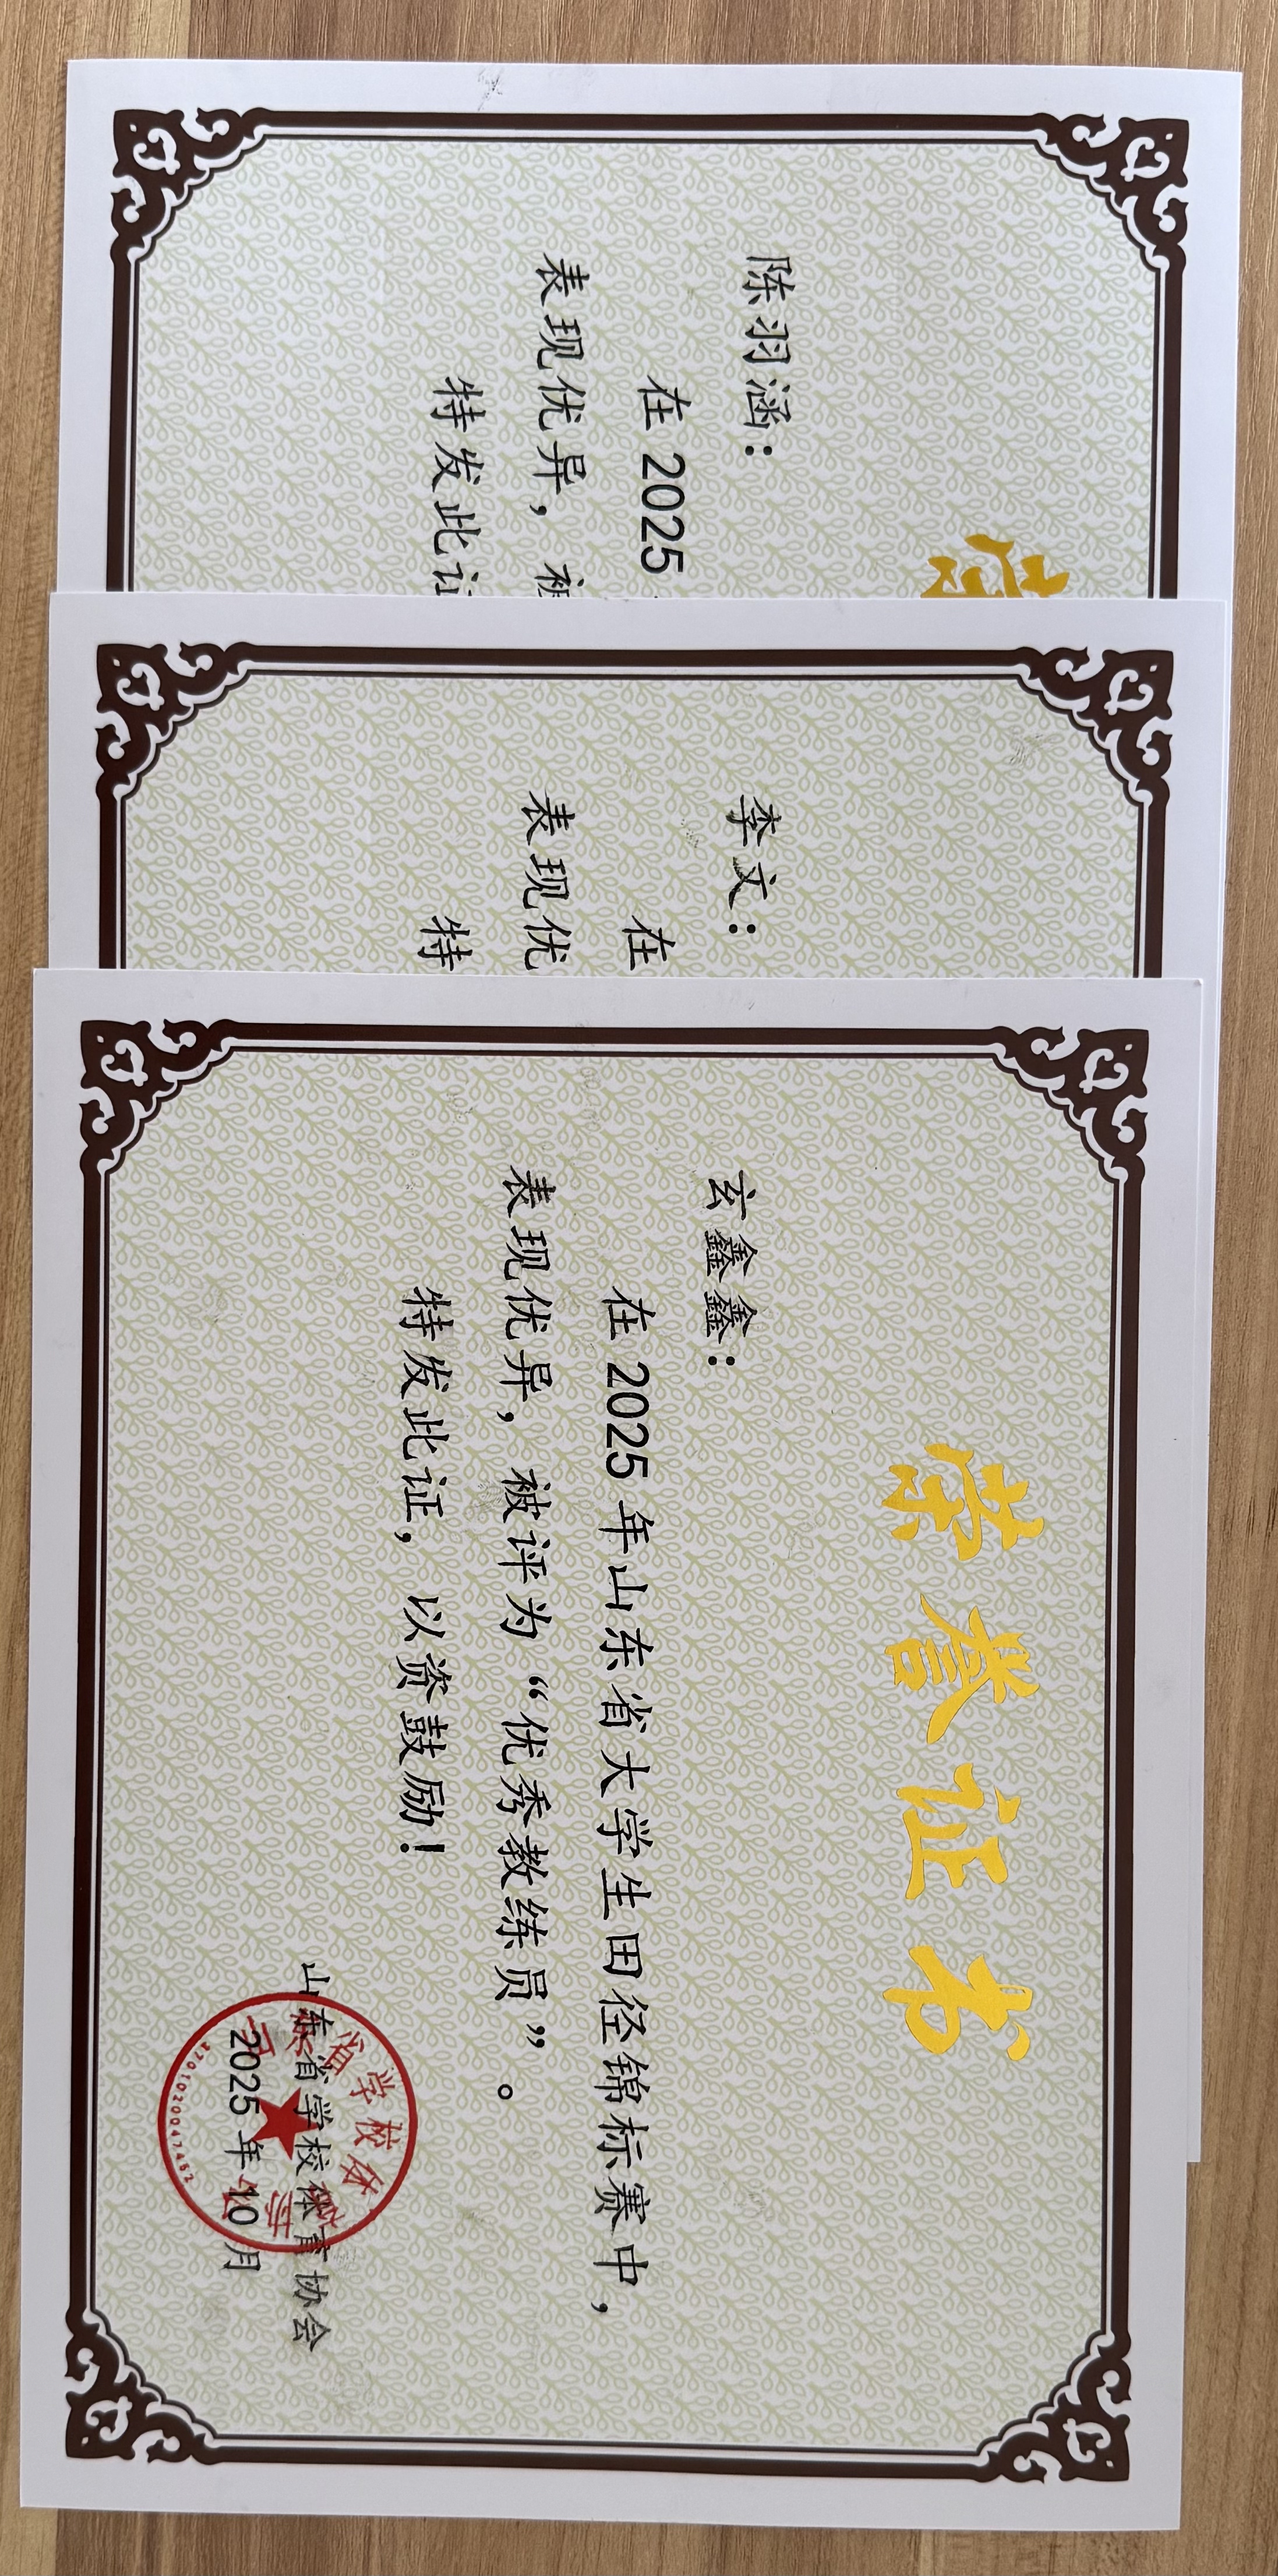 陈羽涵：
在 2025
表现优异，被
特发此证
李文：
在
表现优
特
荣誉证书
玄鑫鑫：
在 2025 年山东省大学生田径锦标赛中，
表现优异，被评为“优秀教练员”。
特发此证，以资鼓励！
山东省学校体育协会
2025 年 10 月
3701020047462